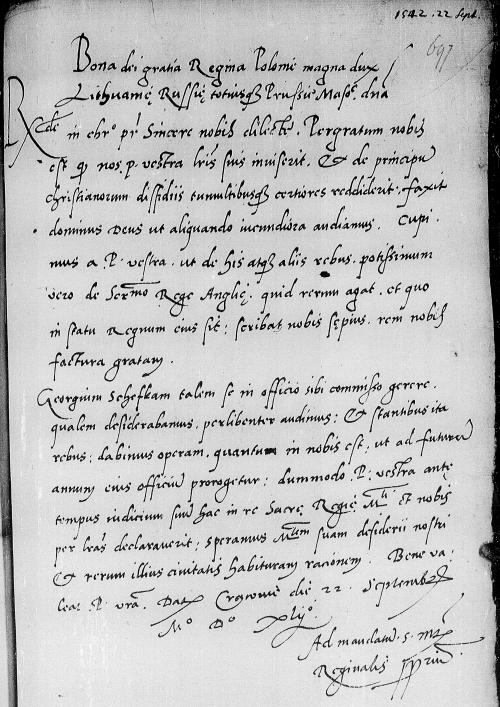 1542. 22 Sept.
697
Bona dei gratia Regina Polonie magna dux
Lithuanię Russię totiusq Prussie Masoe. dna
Rxde in chro pr Sincere nobis dilecte. Pergratum nobis
est q nos. p. vestra lris suis inviserit. Et de principu
christianorum dissidiis tumultibusq certiores reddiderit. faxit
dominus Deus ut aliquando iucundiora audiamus. Cupi-
mus a. P. vestra. ut de his atq aliis rebus. potissimum
vero de Sermo Rege Anglię. quid rerum agat. et quo
in statu Regnum eius sit; scribat nobis sępius. rem nobis
factura gratam.
Georgium Schefkam talem se in officio sibi commisso gerere.
qualem desiderabamus. perlibenter audimus; Et stantibus ita
rebus; dabimus operam. quantum in nobis est; ut ad futuru
annum eius officiu prorogetur; dummodo. P. vestra antę
tempus iudicium suu hac in re Sacrę Regię Mti et nobis
per lras declaraverit; speramus Mtem suam desiderii nostri
Et rerum illius civitatis habituram racionem. Bene va-
leat P. vra. Dat Cracovie die 22. Septembr
Mo Do xlijo.
Ad mandatu. s. Mt
Reginalis ppriu